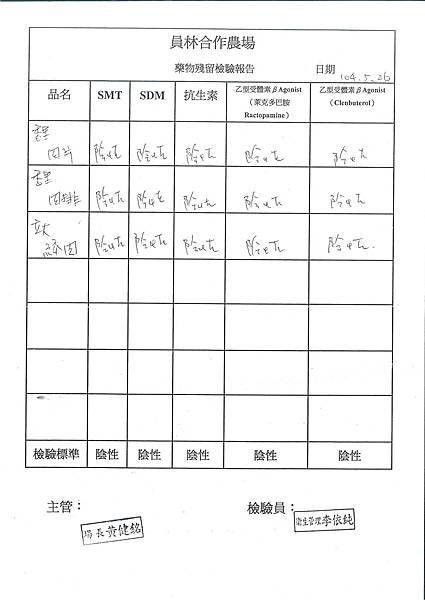 員林合作農場
藥物殘留檢驗報告 日期 104.5.26
品名 SMT SDM 抗生素 乙型受體素βAgonist（萊克多巴胺 Ractopamine） 乙型受體素βAgonist（Clenbuterol）
肉片 陰性 陰性 陰性 陰性 陰性
肉排 陰性 陰性 陰性 陰性 陰性
絞肉 陰性 陰性 陰性 陰性 陰性
檢驗標準 陰性 陰性 陰性 陰性 陰性
主管： 檢驗員：
場長黃健銘 衛生管理李依純